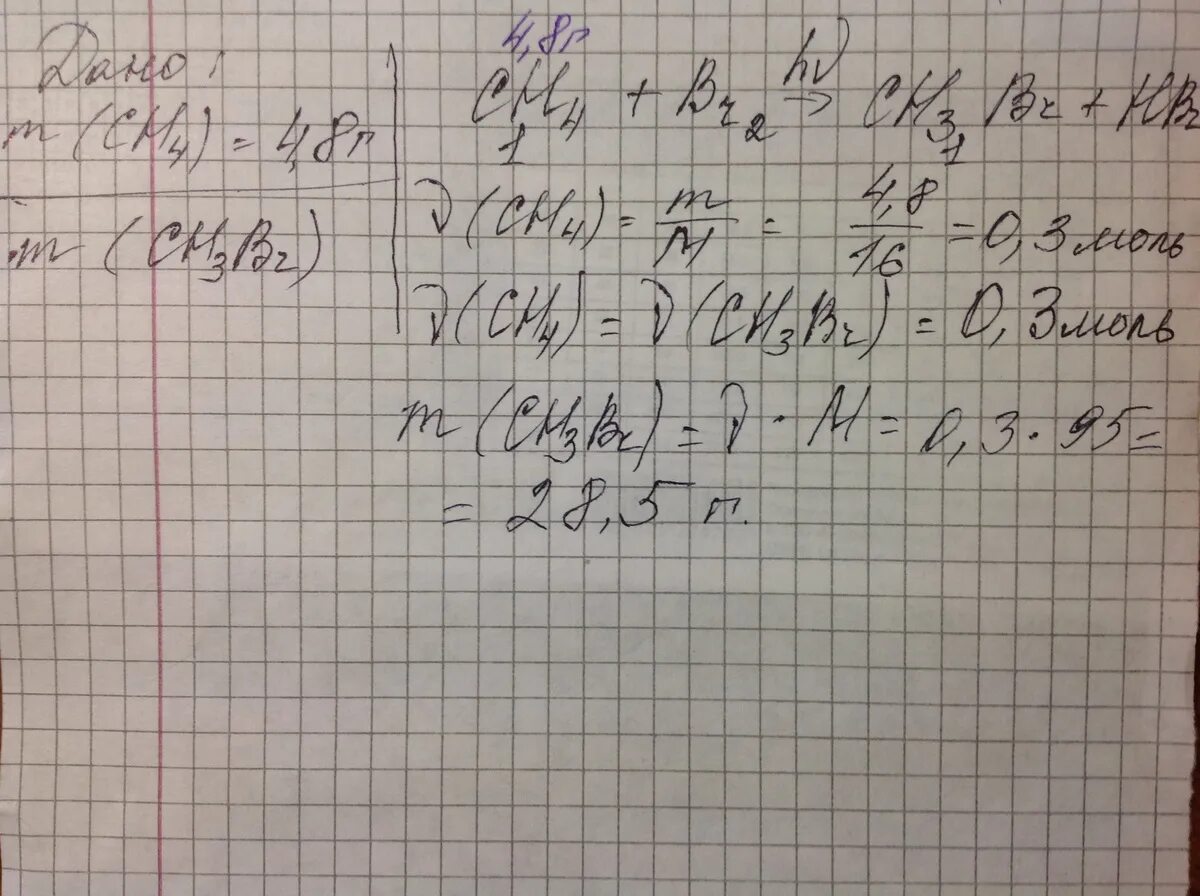 Дано:
m (CH₄) = 4,8г
m (CH₃Br)
4,8г
CH₄ + Br₂ →hν CH₃Br + HBr
1 1
ν(CH₄) = m/M = 4,8/16 = 0,3 моль
ν(CH₄) = ν(CH₃Br) = 0,3 моль
m (CH₃Br) = ν · M = 0,3 · 95 =
= 28,5 г.